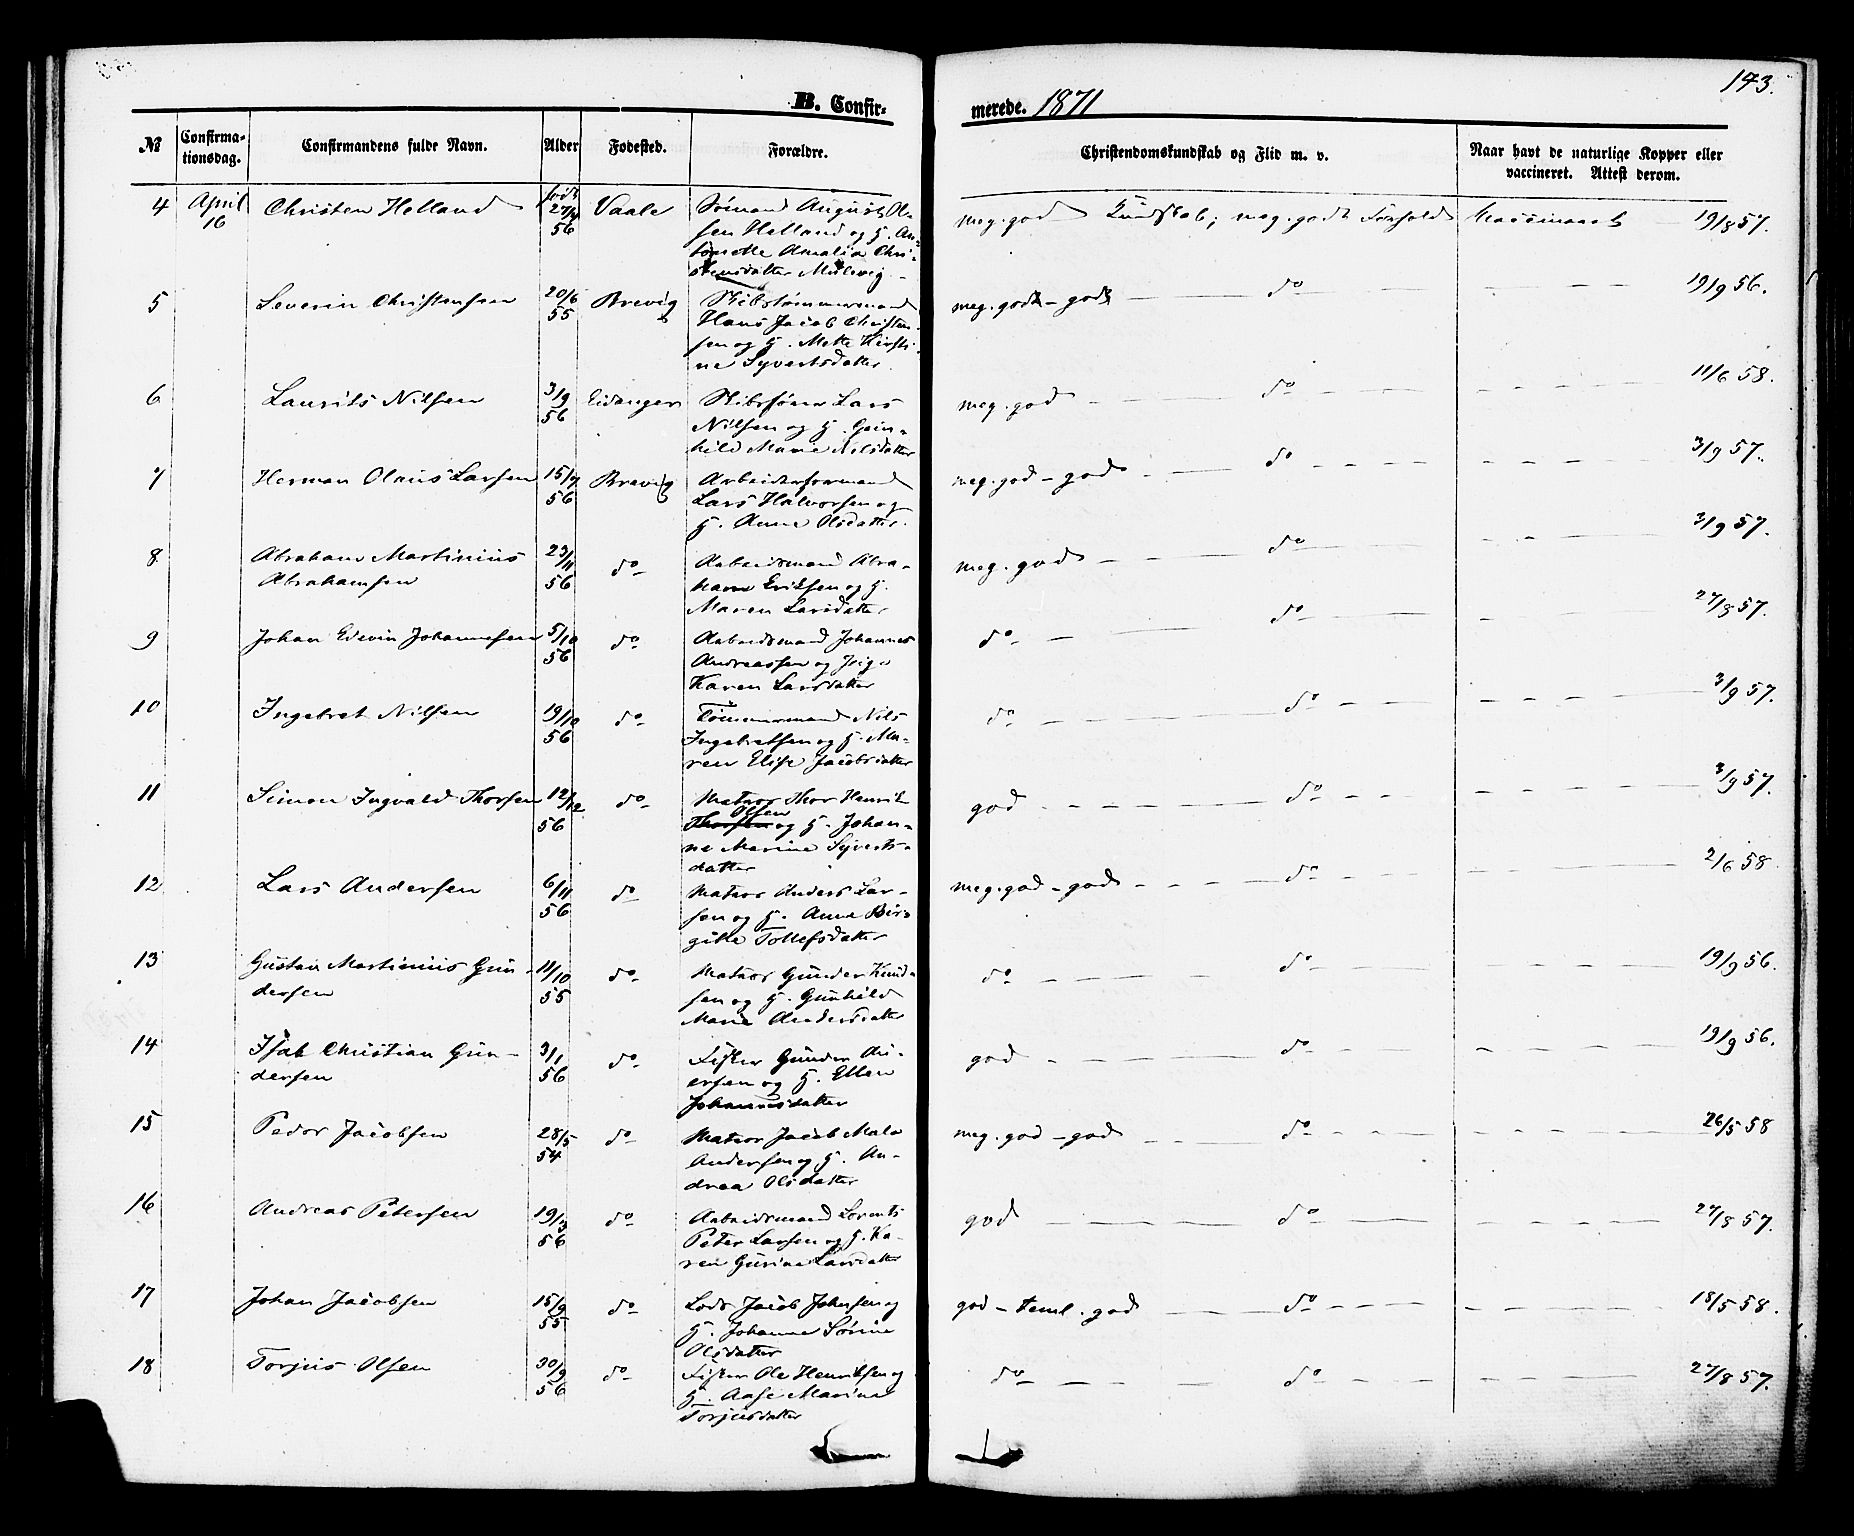 143.
B. Confir- merede. 1871
№ Confirma- tionsdag. Confirmandens fulde Navn. Alder Fødested. Forældre. Christendomskundskab og Flid m. v. Naar havt de naturlige Kopper eller vaccineret. Attest derom.
4 April 16 Christen Helland født 27/4 56 Vaale Sømand August Ol-
sen Helland og H. An-
tonette Amalia Chri-
stensdatter Mulevig meg. god Kundskab; meg. godt Forhold Vaccineret 19/8 57.
5 Severin Christensen 20/6 55 Brevig Skibstømmermand
Hans Jacob Christen-
sen og H. Mette Kirsti-
ne Syvertsdatter meg. godt - godt do 19/9 56.
6 Laurits Nilsen 3/9 56 Eidanger Skibsfører Lars
Nilsen og H. Gun-
hild Marie Nilsdatter meg. god do 11/6 58.
7 Herman Olaus Larsen 15/7 56 Brevig Arbeiderformand
Lars Halvorsen og
H. Anne Olsdatter. meg. god - god do 3/9 57.
8 Abraham Martinius
Abrahamsen 23/11 56 do Arbeidsmand Abra-
ham Eriksen og H.
Maren Larsdatter meg. god do 3/9 57.
9 Johan Edevin Johannesen 5/10 56 do Arbeidsmand Johannes
Andreassen og Pige
Karen Larsdatter do do 27/8 57.
10 Ingebret Nilsen 19/10 56 do Tømmermand Nils
Ingebretsen og H. Ma-
ren Elise Jacobsdatter do do 3/9 57.
11 Simon Ingvald Thorsen 12/12 56 do Matros Thor Henrik
Olsen
Thorsen og H. Johan-
ne Marine Syverts-
datter god do 3/9 57.
12 Lars Andersen 6/11 56 do Matros Anders Lar-
sen og H. Anne Bir-
gitte Tollefsdatter meg. god - god do 2/6 58
13 Gustav Martinius Gun-
dersen 11/10 55 do Matros Gunder Knud-
sen og H. Gunhild
Marie Andersdatter do do 19/9 56.
14 Isak Christian Gun-
dersen 3/1 56 do Fisker Gunder An-
ersen og H. Ellen
Johannesdatter god do 19/9 56.
15 Peder Jacobsen 28/5 54 do Matros Jacob Malo
Andersen og H. An-
drea Olsdatter meg. god - god do 26/5 58
16 Andreas Petersen 19/3 56 do Arbeidsmand Lorents
Peter Larsen og H. Ka-
ren Gurine Larsdatter god do 27/8 57.
17 Johan Jacobsen 15/9 55 do Lods Jacob Johnsen og
H. Johanne Sørine
Olsdatter god - teml. god do 18/5 58.
18 Torjus Olsen 30/9 56 do Fisker Ole Henriksen og
H. Aase Marine
Torjusdatter do do 27/8 57.